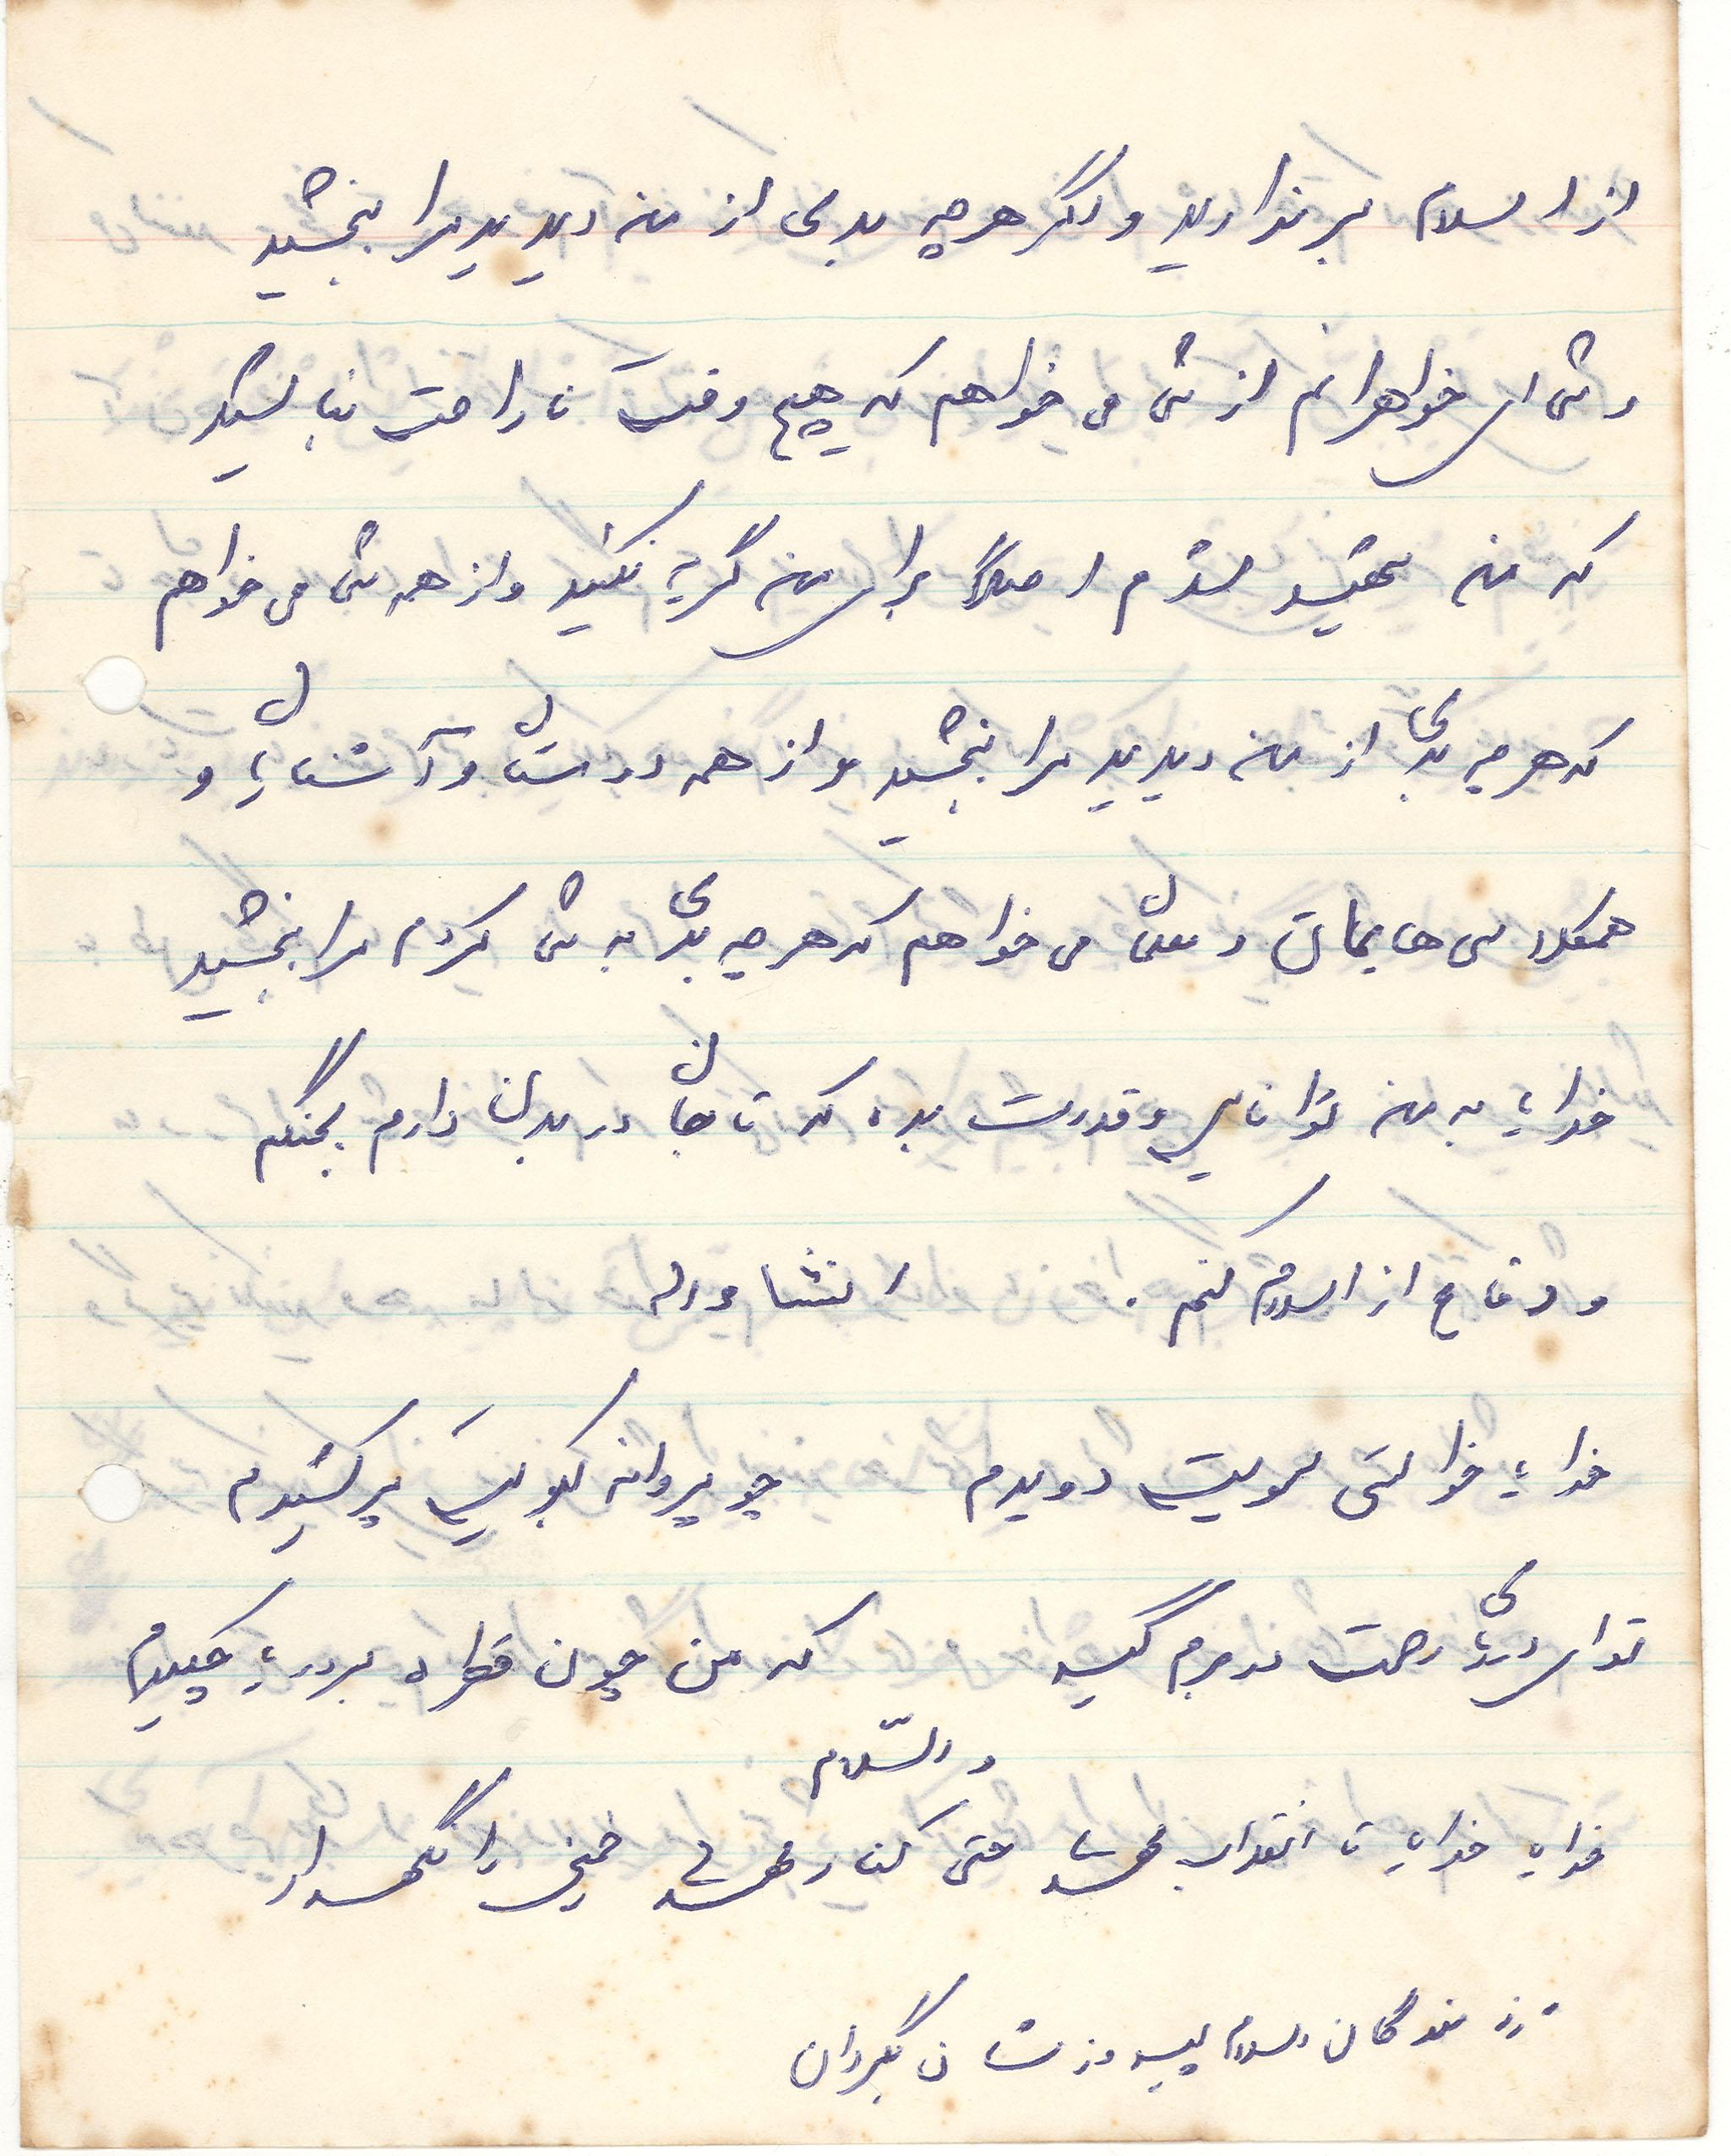 از اسلام برندارید و اگر هرچه بدی از من دیدید مرا ببخشید
و شما ای خواهرانم از شما می خواهم که هیچ وقت ناراحت نباشید
که من شهید شدم اصلاً برای من گریه نکنید و از همه شما می خواهم
که هرچه بدی از من دیدید مرا ببخشید و از همه دوستان و آشنایان و
همکلاسی هایمان و می خواهم که هرچه بدی به شما کردم مرا ببخشید
خدایا به من توانایی و قدرت بده که تا جان در بدن دارم بجنگم
و دفاع از اسلام کنم . انشاءالله
خدایا خواستی سویت دویدم چو پروانه بکویت پر کشیدم
تو ای دریای رحمت در برم گیر که من چون قطره بر دریا چکیدم
والسّلام
خدایا خدایا تا انقلاب مهدی حتی کنار مهدی خمینی را نگهدار
رزمندگان اسلام پیروزشان بگردان